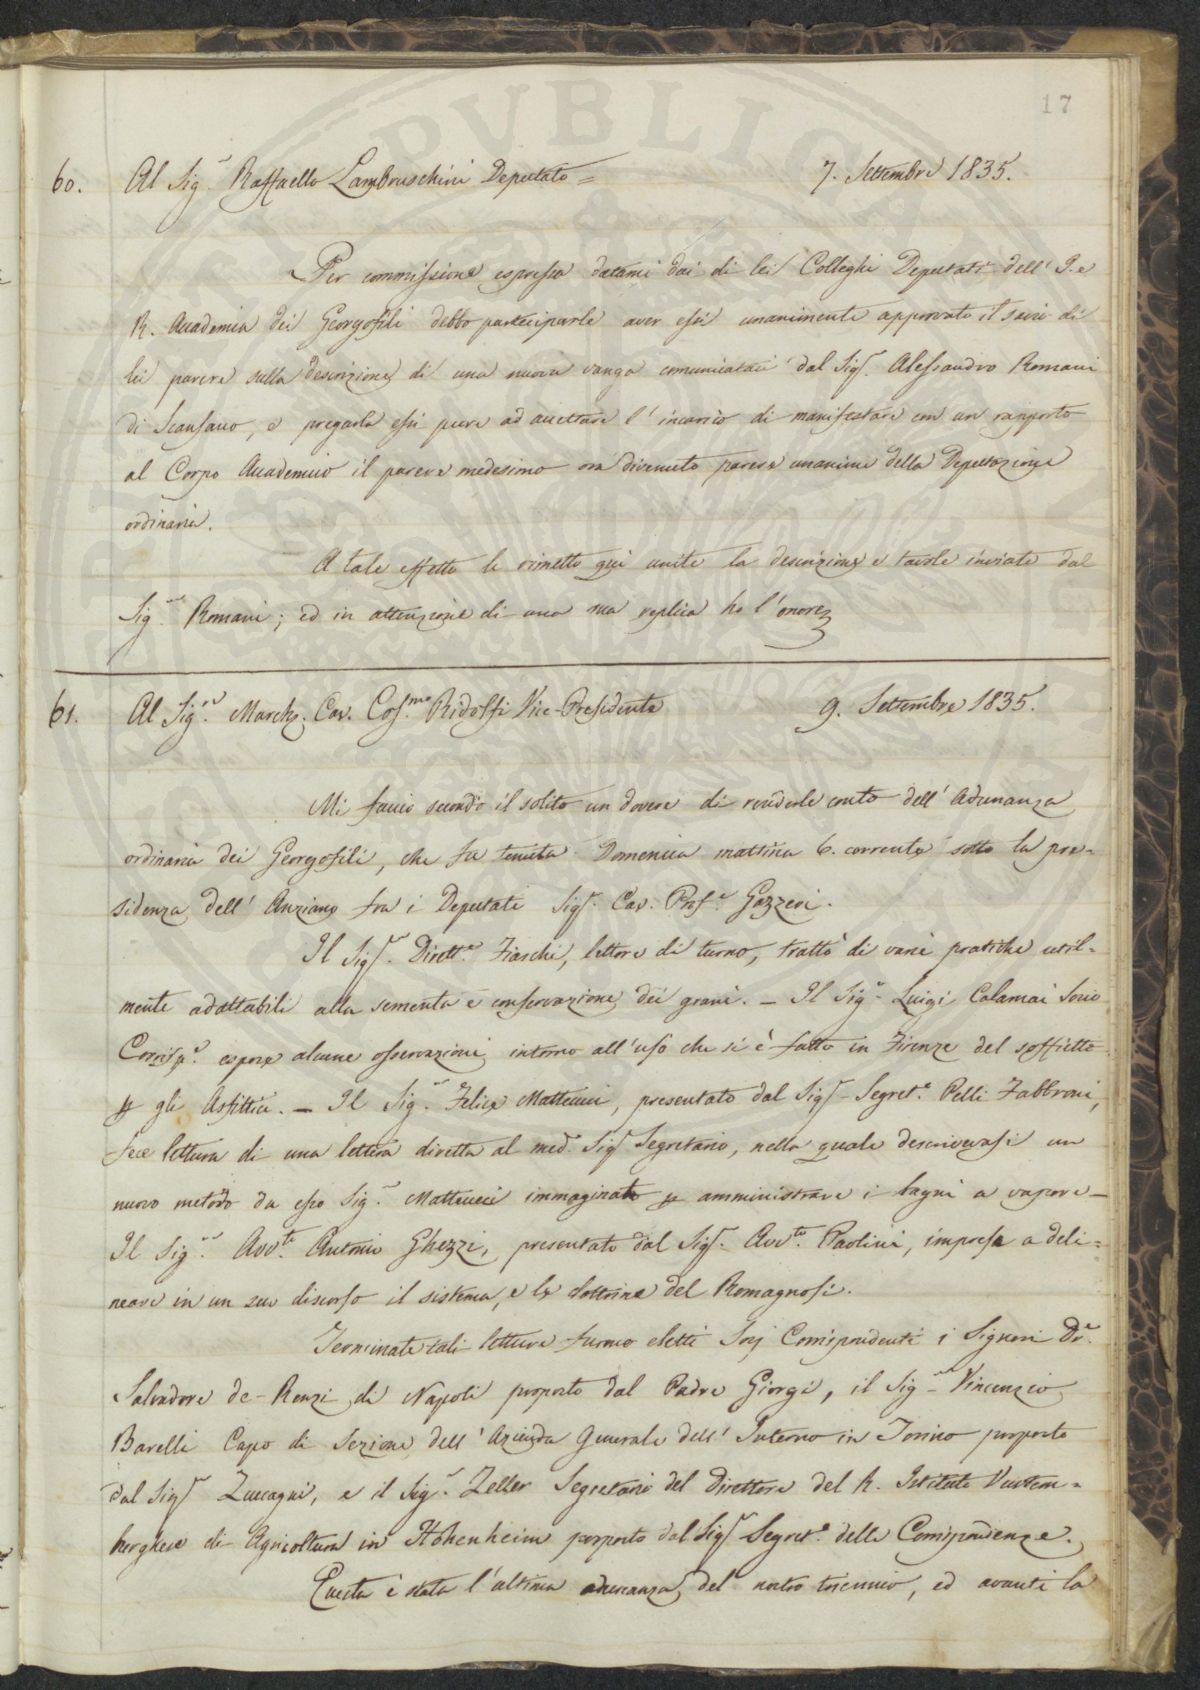 17
60. Al Sig.r Raffaello Lambruschini Deputato = 7. Settembre 1835.
Per commissione espressa datami dai di lei Colleghi Deputati dell' I. e
R. Accademia dei Georgofili debbo parteciparle aver essi unanimente approvato il savio di
lei parere sulla descrizione di una nuova vanga comunicataci dal Sig.r Alessandro Romani
di Scansano, e pregarla essi pure ad accettare l' incarico di manifestare con un rapporto
al Corpo Accademico il parere medesimo ora divenuto parere unanime della Deputazione
ordinaria.
A tale effetto le rimetto quì unite la descrizione e tavole inviate dal
Sig.r Romani; ed in attenzione di una sua replica ho l' onore
61. Al Sig.r March. Cav. Cos.mo Ridolfi Vice-Presidente 9. Settembre 1835.
Mi faccio secondo il solito un dovere di renderle conto dell' Adunanza
ordinaria dei Georgofili, che fu tenuta Domenica mattina 6. corrente sotto la pre=
sidenza dell' Anziano fra i Deputati Sig.r Cav. Prof.e Gazzeri.
Il Sig.r Dirett.e Fiaschi, lettore di turno, trattò di varie pratiche util=
mente adattabili alla sementa e conservazione dei grani. - Il Sig.r Luigi Calamai Socio
Corrisp.e espose alcune osservazioni intorno all' uso che si è fatto in Firenze del soffietto
p gli Asfittici. - Il Sig.r Felice Matteucci, presentato dal Sig.r Segret.e Pelli Fabbroni,
fece lettura di una lettera diretta al med.o Sig.r Segretario, nella quale descrivevasi un
nuovo metodo da esso Sig.r Matteucci immaginato p amministrare i bagni a vapore -
Il Sig.r Avv.to Antonio Ghezzi, presentato dal Sig.r Avv.to Paolini, imprese a deli=
neare in un suo discorso il sistema, e le dottrine del Romagnosi.
Terminate tali letture furono eletti Socj Corrispondenti i Signori Dr.
Salvadore de-Renzi di Napoli proposto dal Padre Giorgi, il Sig.r Vincenzio
Barelli Capo di Sezione dell' Azienda Generale dell' Interno in Torino proposto
dal Sig.r Zuccagni, e il Sig.r Zeller Segretario del Direttore del R. Istituto Vurtem=
berghese di Agricoltura in Hohenheim proposto dal Sig.r Segret.o delle Corrispondenze.
Questa è stata l' ultima adunanza del nostro triennio, ed avanti la